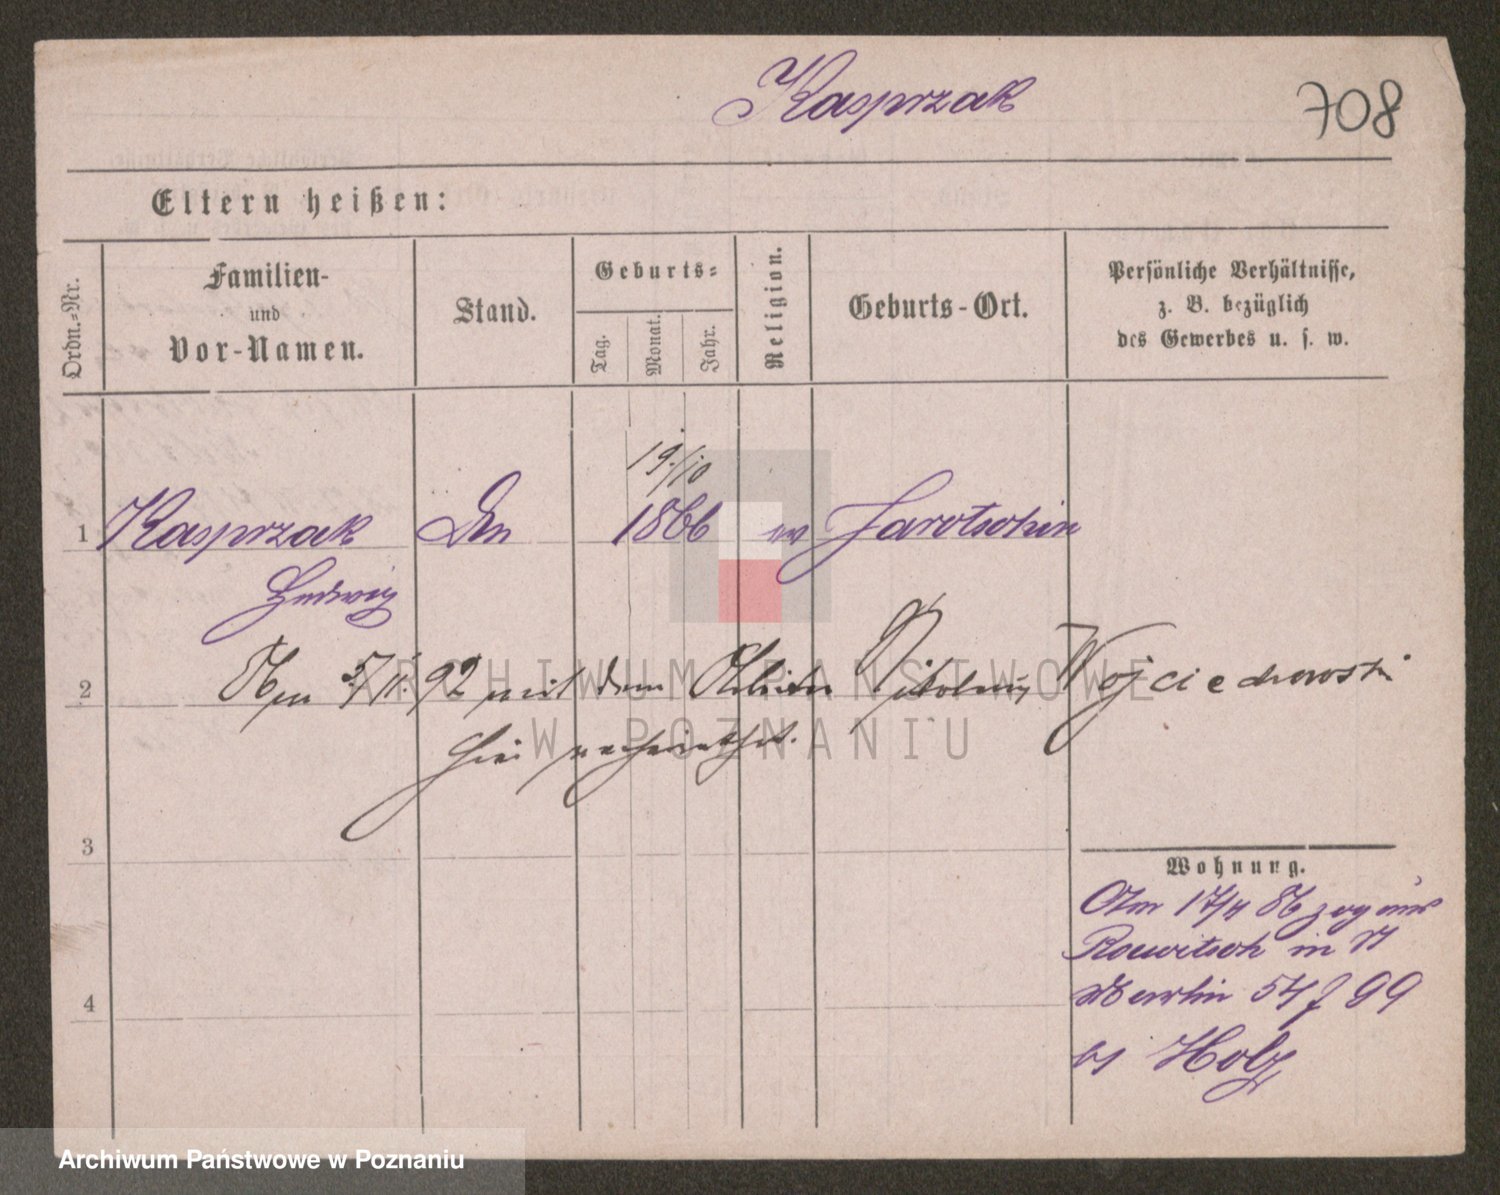 Kasprzak 708
Eltern heißen:
Ordn.-Nr.
Familien-
und
Vor-Namen.
Stand.
Geburts-
Tag.
Monat.
Jahr.
Religion.
Geburts-Ort.
Persönliche Verhältnisse,
z. B. bezüglich
des Gewerbes u. s. w.
19./10
1 Kasprzak 1866 Jarotschin
Hedwig
2 Am 5/11. 92 mit dem Arbeiter Wojciechowski
hier verheirathet.
3
Wohnung.
Am 17/4 86 zog aus
in
4
Holz
ARCHIWUM PAŃSTWOWE
W POZNANIU
Archiwum Państwowe w Poznaniu